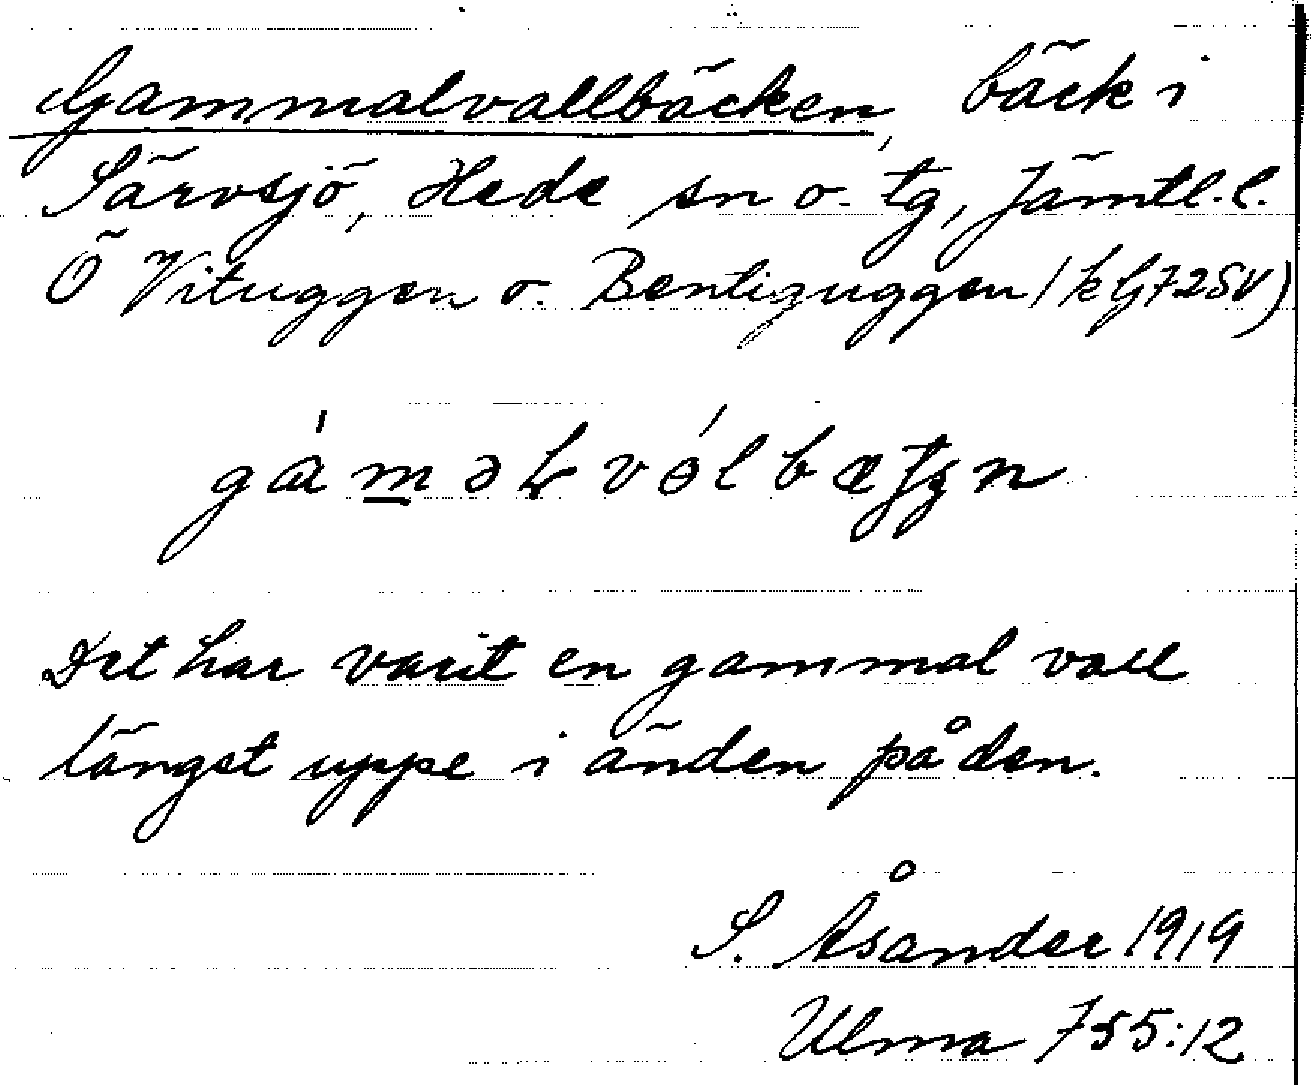 Gammalvallbäcken, bäck i
Särvsjö, Hede sn o. tg, Jämtl. l.
Ö Vituggen o. Bentiguggen (k G725V)
Det har varit en gammal vall
längst uppe i änden på den.
S. Åsander 1919
Ulma 755:12